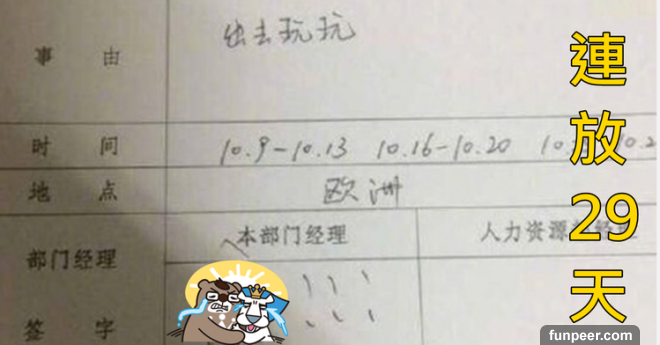 事 由 出去玩玩
时 间 10.9-10.13 10.16-10.20
地 点 欧洲
部门经理 本部门经理 人力资源
签 字
連放29天
funpeer.com